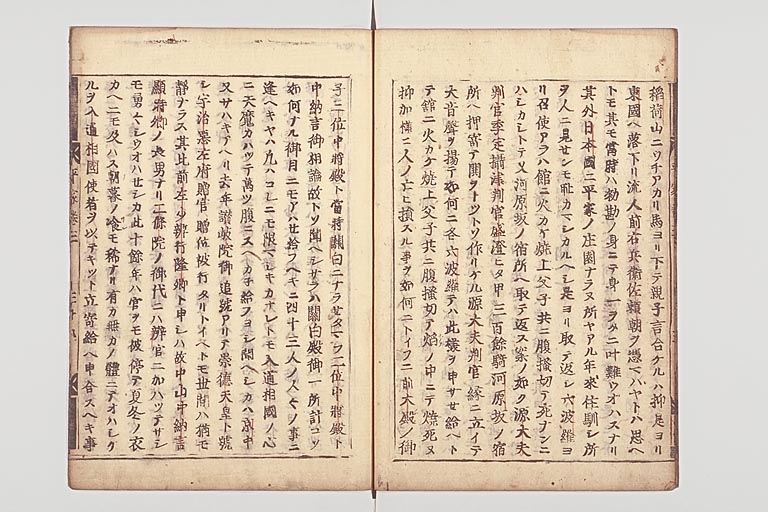 稲荷山ニウチアカリ馬ヨリ下テ親子言合ケルハ抑是ヨリ
東國ヘ落下リ流人前右兵衛佐頼朝ヲ憑ハヤトハ思ヘ
トモ其モ當時ハ勅勘ノ身ニテ身一ヲタニ叶難ウオハスナリ
其外日本國ニ平家ノ庄園ナラヌ所ヤアル年来住馴シ所
ヲ人ニ見センモ耻カマシカルヘシ是ヨリ取テ返シ六波羅ヨ
リ召使アラハ館ニ火カケ焼上父子共ニ腹掻切テ死ナンニ
ハシカシトテ又河原坂ノ宿所ヘ取テ返ス案ノ如ク源大夫
判官季定攝津判官盛澄ヒタ甲三百餘騎河原坂ノ宿
所ヘ押寄テ閧ヲトツト作リケル源大夫判官縁ニ立イテ
大音聲ヲ揚テ如何ニ各六波羅テハ此樣ヲ申サセ給ヘト
テ館ニ火カケ焼上父子共ニ腹掻切テ焰ノ中ニテ燒死ヌ
抑加樣ニ人ノ亡ヒ損スル事ヲ如何ニトイフニ前大殿ノ御
子二位中將殿ト當時關白ニナラセ給フ二位中將殿ト
中納言御相論故トソ聞ヘシサラハ關白殿御一所計コソ
如何ナル御目ニモアハセ給フヘキニ四十三人ノ人々ノ事ニ
逢ヘキヤハ凡ハコレニモ限マシキカナレトモ入道相國ノ心
ニ天魔カハツテ萬ツ腹ニスヘカ子給フヨシ聞ヘシカハ京中
又サハキアヘリ去年讃岐院御追號アリテ崇德天皇ト號
シ宇治惡左府贈官贈位被行タリトイヘトモ世間ハ猶モ
靜ナラス其比前左少辨行隆卿ト申シハ故中山中納言
顯時卿ノ長男ナリ二條院ノ御代ニハ辨官ニ加ハツテサシ
モ勇々シウオハセシカ此十餘年ハ官ヲモ被停テ夏冬ノ衣
カヘニモ及ハス朝暮ノ飡モ稀ナリ有カ無カノ體ニテオハシケ
ルヲ入道相國使者ヲ以テキツト立寄給ヘ申合スヘキ事
平家卷三
三十九